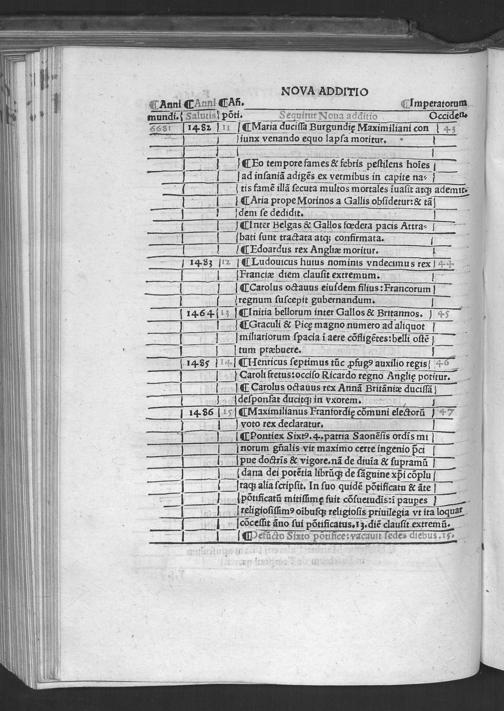 NOVA ADDITIO
¶Anni ¶Anni ¶Añ. ¶Imperatorum
mundi. Salutis põti. Sequitur Noua additio Occiden.
6681 1482 11 ¶Maria ducissa Burgundię Maximiliani con 43
iunx venando equo lapsa moritur.
¶Eo tempore fames & febris pestilens hoĩes
ad insaniã adigẽs ex vermibus in capite na-
tis famẽ illã secuta multos mortales iuasit atqȝ ademit.
¶Aria prope Morinos a Gallis obsidetur: & tã
dem se dedidit.
¶Inter Belgas & Gallos fœdera pacis Attra-
bati sunt tractata atqȝ confirmata.
¶Edoardus rex Angliæ moritur.
1483 12 ¶Ludouicus huius nominis vndecimus rex 44
Franciæ diem clausit extremum.
¶Carolus octauus eiusdem filius: Francorum
regnum suscepit gubernandum.
1464 13 ¶Initia bellorum inter Gallos & Britannos. 45
¶Graculi & Picę magno numero ad aliquot
miliariorum spacia i aere cõfligẽtes: belli ostẽ
tum præbuere.
1485 14 ¶Henricus septimus tũc ꝓfugꝰ auxilio regis 46
Caroli fretus: occiso Ricardo regno Anglię potitur.
¶Carolus octauus rex Annã Britãniæ ducissã
desponsat ducitqȝ in vxorem.
1486 15 ¶Maximilianus Franfordię cõmuni electorũ 47
voto rex declaratur.
¶Pontifex Sixtꝰ.4. patria Saonẽsis ordis mi
norum gñalis vir maximo certe ingenio p̃ci
pue doctrĩs & vigore. nã de diuia & supramũ
dana dei potẽtia librũqȝ de sãguine xp̃i cõplu
raqȝ alia scripsit. In suo quidẽ põtificatu & ãte
põtificatũ mitissimę fuit cõsuetudis: ĩ paupes
religiosissimꝰ oibusqȝ religiosis priuilegia vt ita loquar
cõcessit ãno sui põtificatus.13. diẽ clausit extremũ.
¶Defũcto Sixto põtifice: vacauit sedes diebus.15.